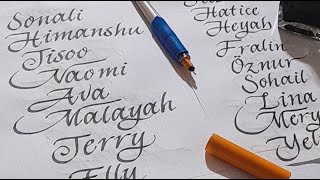 Sonali
Himanshu
Jisoo
Naomi
Ava
Malayah
Jerry
Elly
Hatice
Heyah
Fralin
Öznur
Sohail
Lina
Mery